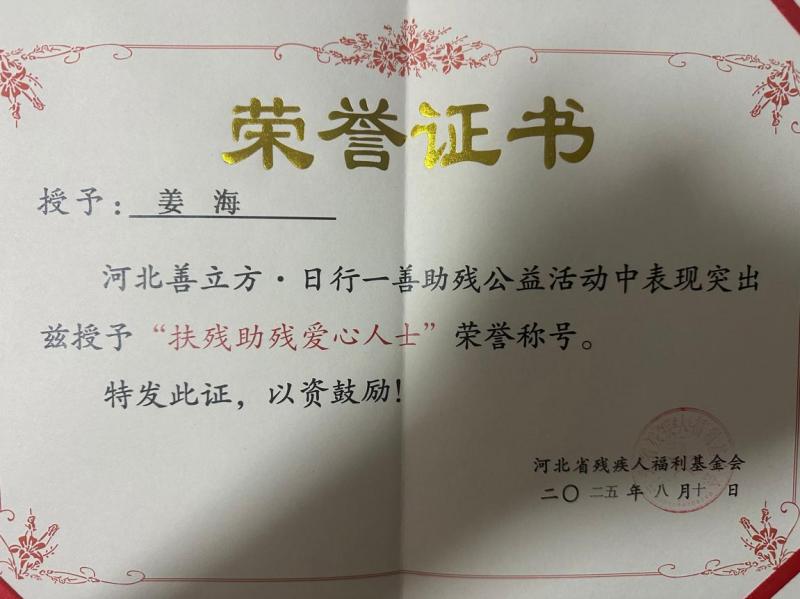 荣誉证书
授予：姜 海
河北善立方·日行一善助残公益活动中表现突出
兹授予“扶残助残爱心人士”荣誉称号。
特发此证，以资鼓励！
河北省残疾人福利基金会
二〇二五年八月十日